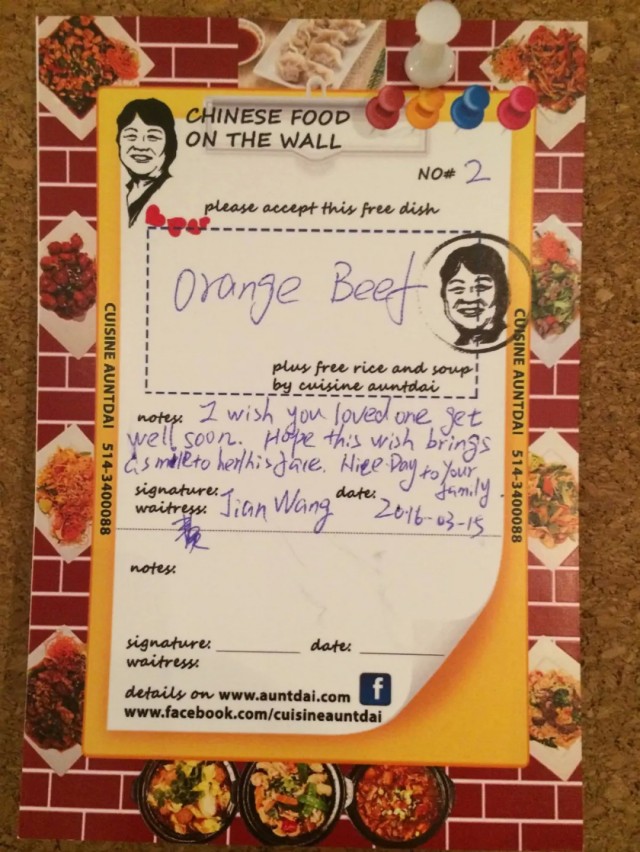 CHINESE FOOD
ON THE WALL
NO# 2
please accept this free dish
Orange Beef
plus free rice and soup
by cuisine auntdai
CUISINE AUNTDAI 514-3400088
CUISINE AUNTDAI 514-3400088
notes: I wish you loved one get
well soon. Hope this wish brings
a smile to her/his face. Nice Day to your
family
signature: Jian Wang date: 2016-03-15
waitress:
notes:
signature: date:
waitress:
details on www.auntdai.com f
www.facebook.com/cuisineauntdai